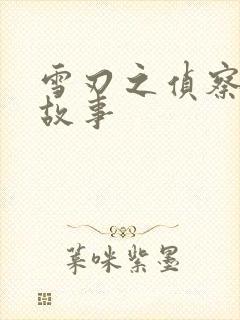 雪刃之偵察
故事
菓咪紫墨